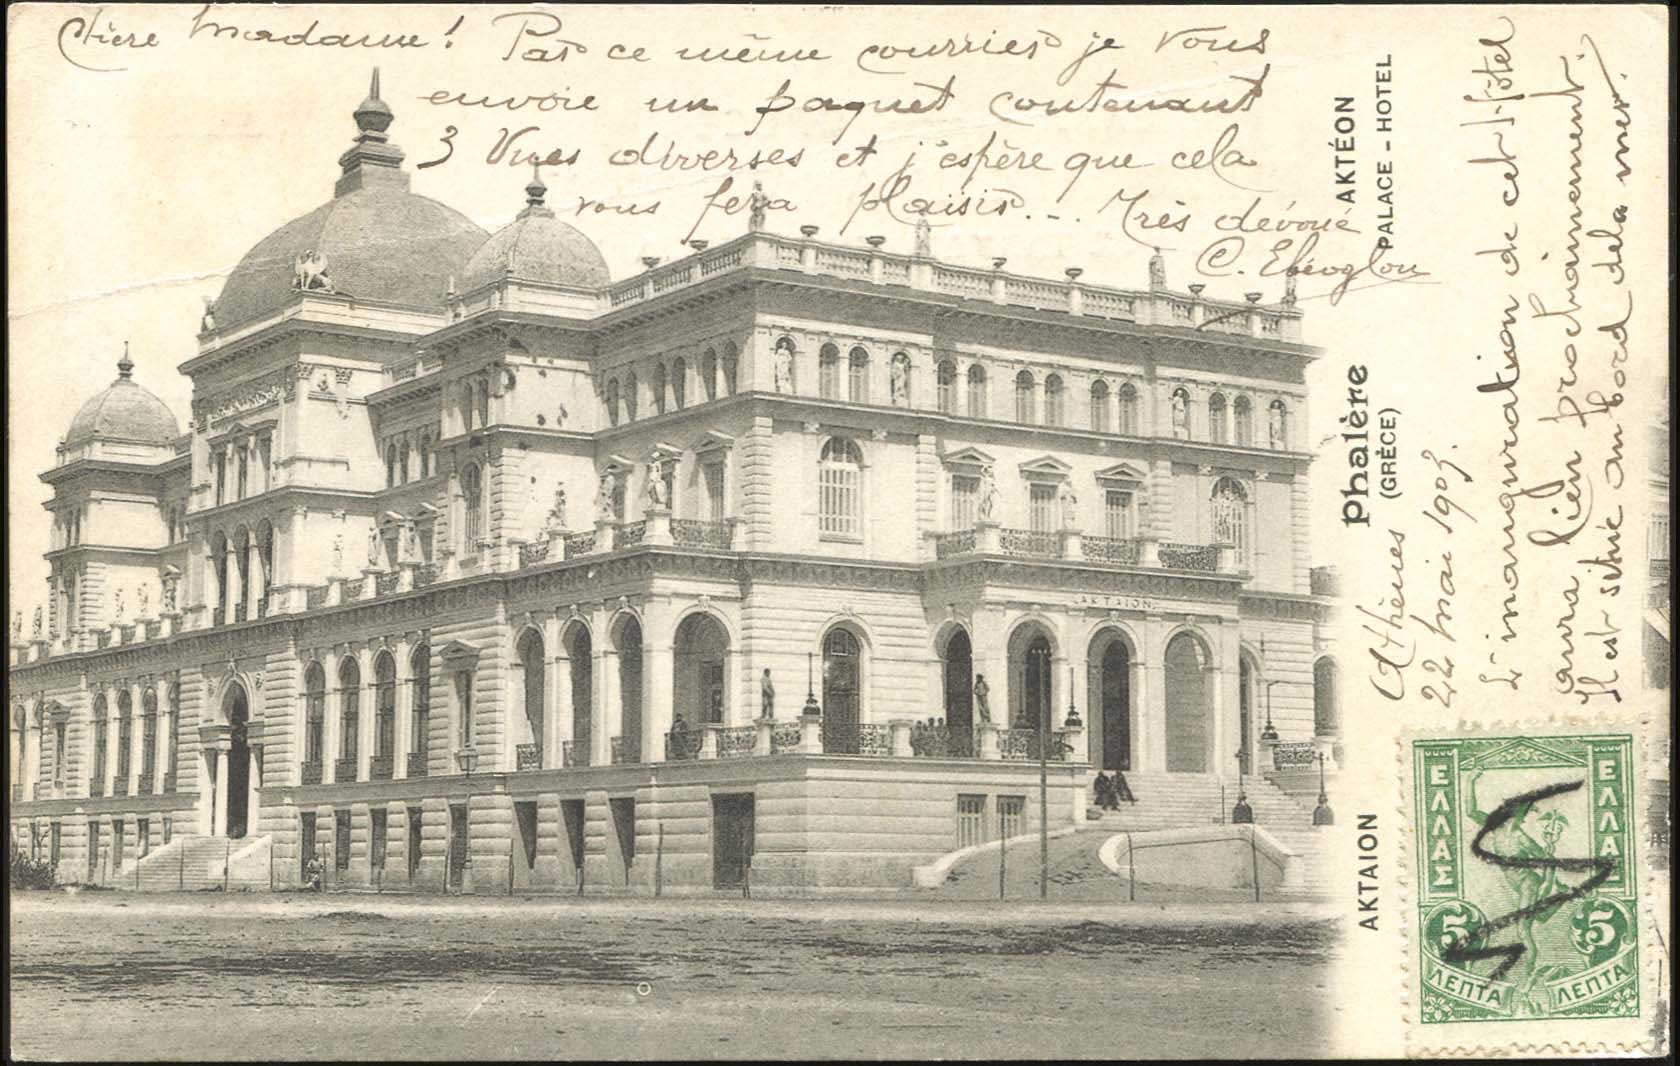 Chère Madame! Par ce même courrier je vous
envoie un paquet contenant
3 Vues diverses et j'espère que cela
vous fera plaisir... Très dévoué
C.
AKTAION
AKTÉON
PALACE - HOTEL
Phalère
(GRÈCE)
ΑΚΤΑΙΟΝ
Athènes
22 Mai 1903.
L'inauguration de cet Hôtel
aura lieu prochainement.
Il est situé au bord de la mer.
ΕΛΛΑΣ
ΕΛΛΑΣ
5 5
ΛΕΠΤΑ ΛΕΠΤΑ